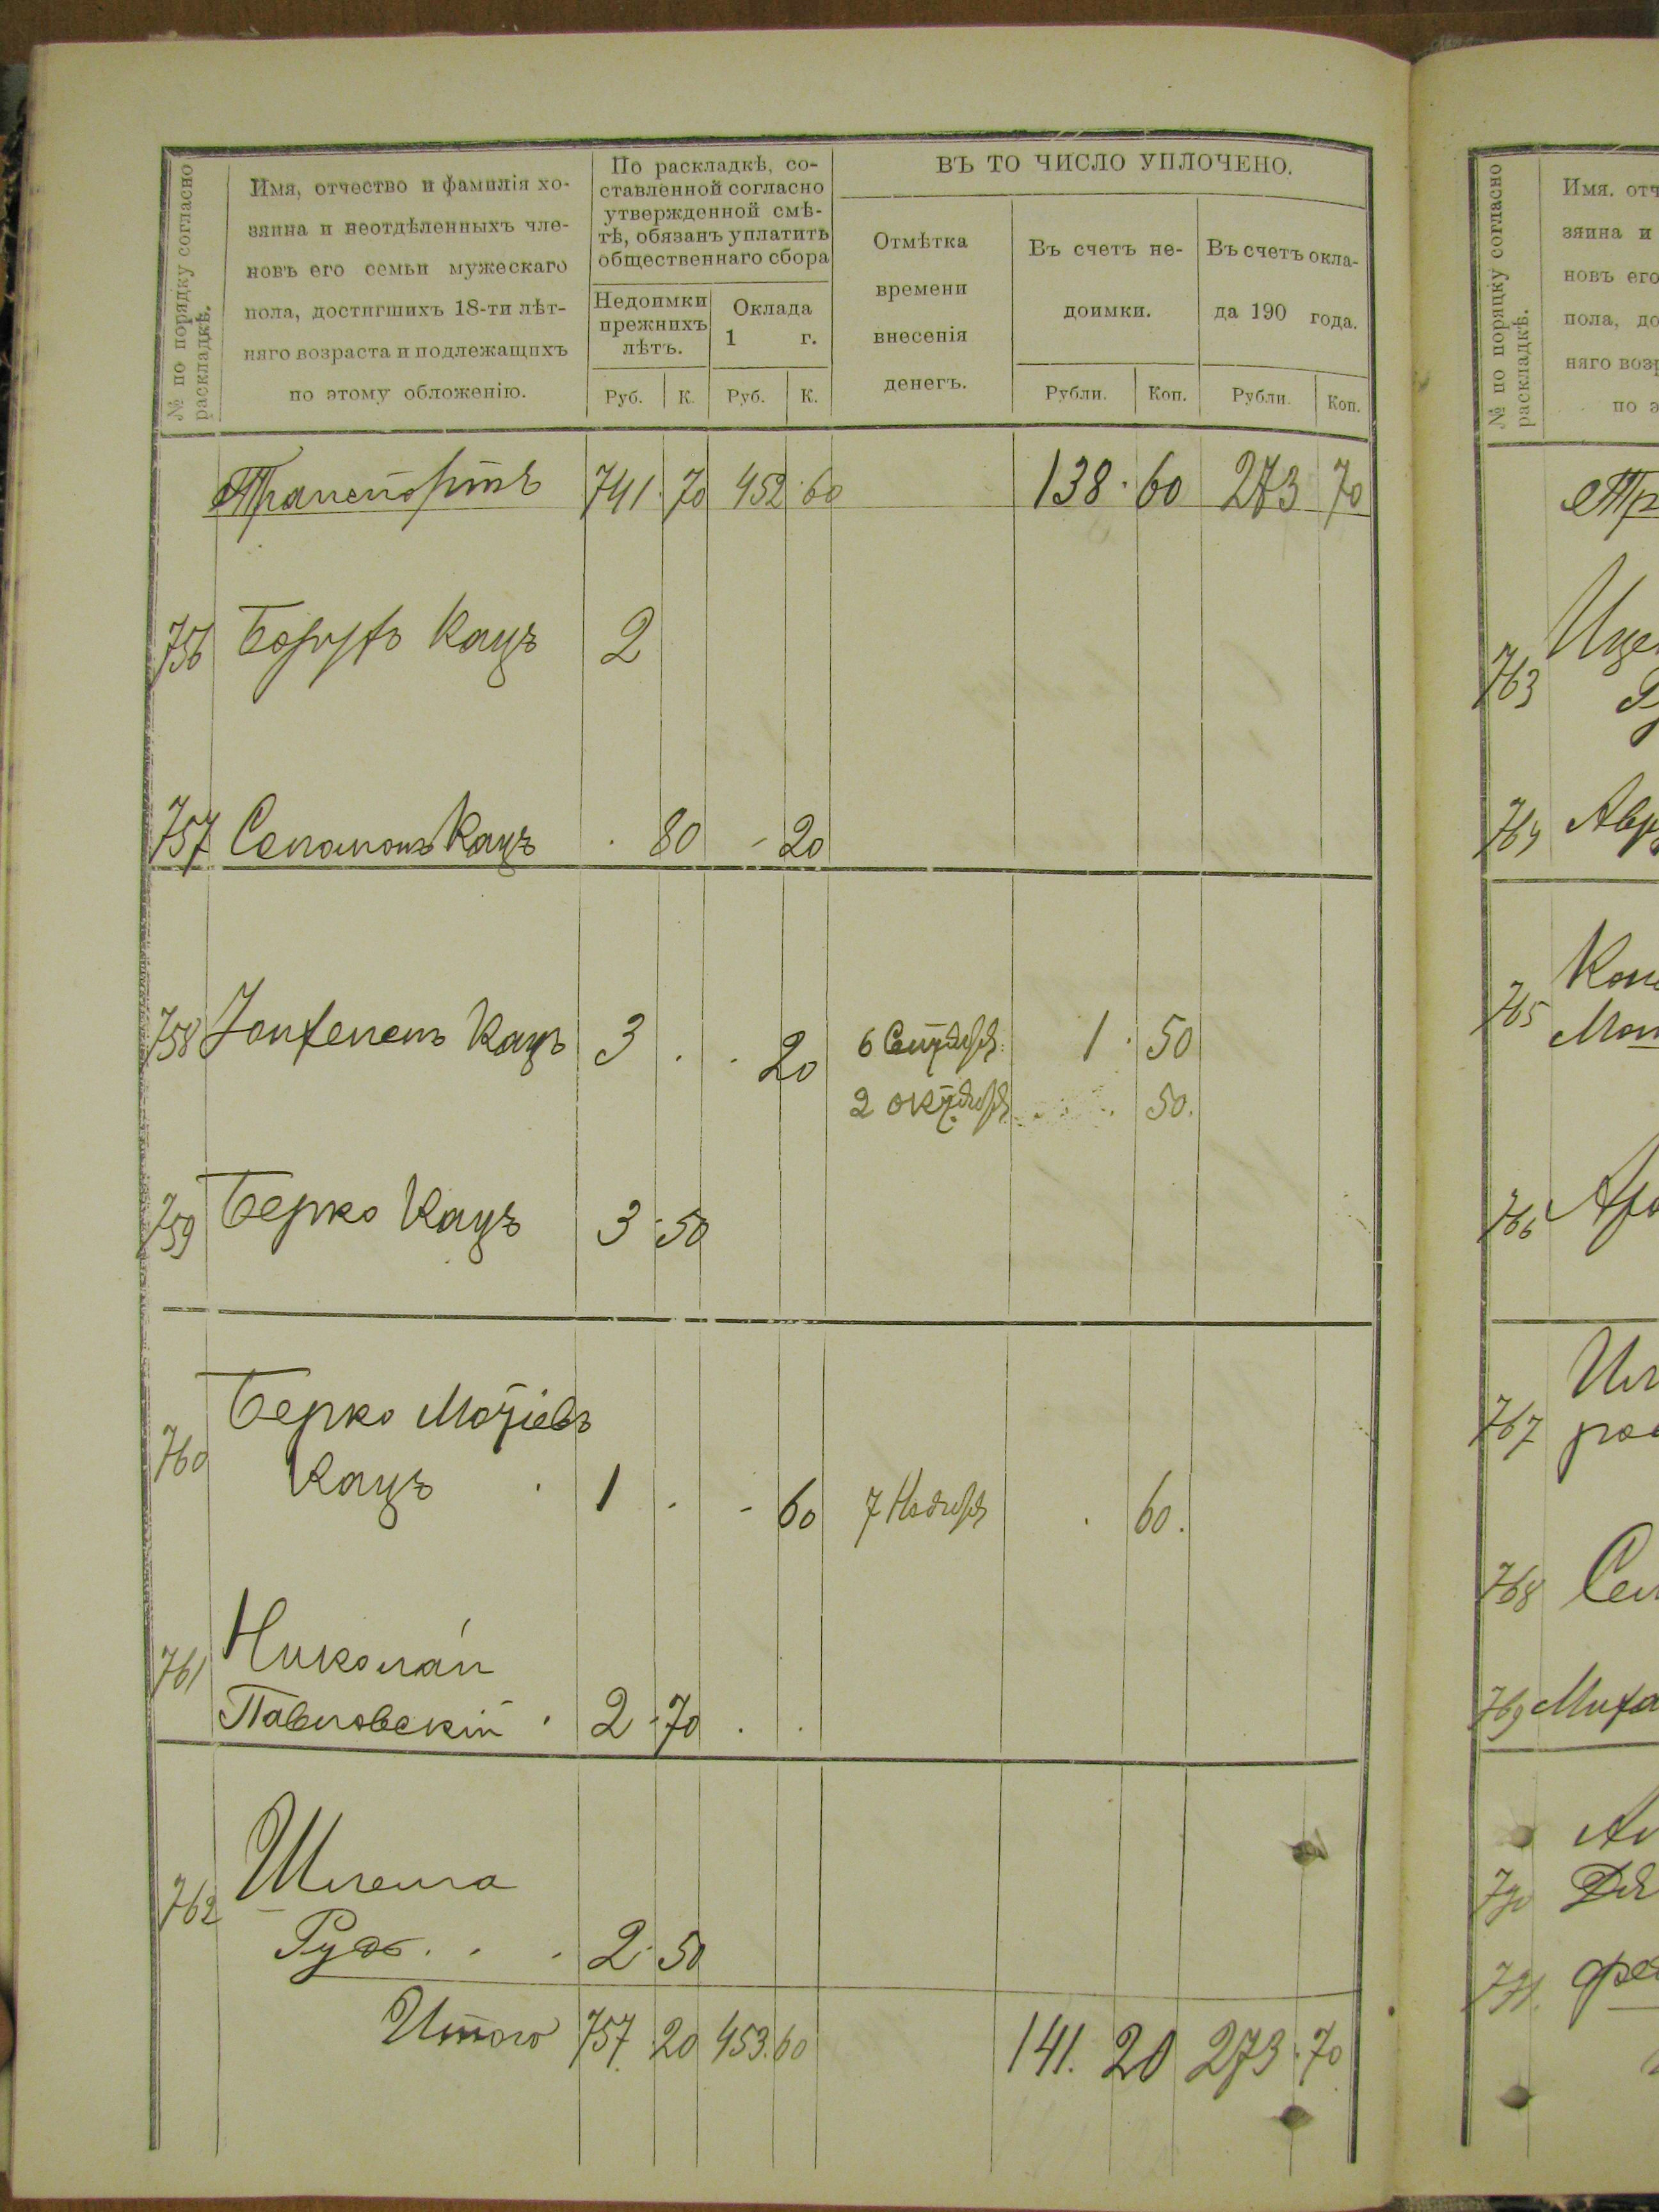 № по порядку согласно
раскладкѣ.
Имя, отчество и фамилія хо-
зяина и неотдѣленныхъ чле-
новъ его семьи мужескаго
пола, достигшихъ 18-ти лѣт-
няго возраста и подлежащихъ
по этому обложенію.
По раскладкѣ, со-
ставленной согласно
утвержденной смѣ-
тѣ, обязанъ уплатить
общественнаго сбора
Недоимки
прежнихъ
лѣтъ.
Оклада
1 г.
Руб. К. Руб. К.
ВЪ ТО ЧИСЛО УПЛОЧЕНО.
Отмѣтка
времени
внесенія
денегъ.
Въ счетъ не-
доимки.
Въ счетъ окла-
да 190 года.
Рубли. Коп. Рубли. Коп.
Транспортъ 741. 70 452. 60 138. 60 273 70
756 Борухъ Кацъ 2
757 Соломонъ Кацъ . 80 - 20
758 Кацъ 3 . . 20 6 Сентября 1. 50
2 октября . . 50.
759 Берко Кацъ 3. 50
Берко Мотіевъ
760 Кацъ . 1 . - 60 7 Ноября . 60.
761 Николай
Павловскій . 2. 70 . .
762 Шлема
Рудъ. . . 2. 50
Итого 757. 20 453. 60 141. 20 273. 70
№ по порядку согласно
раскладкѣ.
Имя. отч
зяина и
новъ его
пола, до
няго возр
по э
Тр
763
764 Авр
765
766
767
768
769 Миха
770
771.